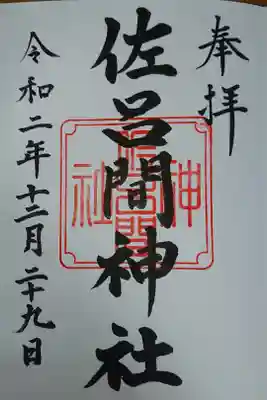 奉拝
佐呂間神社
令和二年十二月二十九日
佐呂間神社